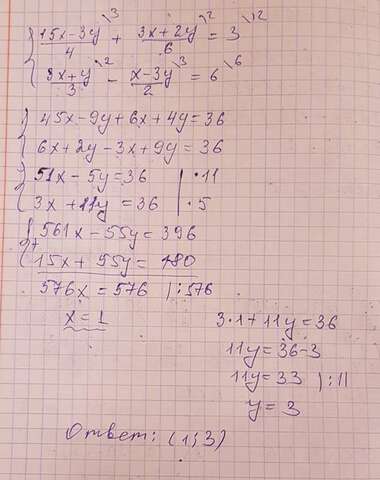 (15x-3y)/4 \3 + (3x+2y)/6 \2 = 3 \12
(3x+y)/3 \2 - (x-3y)/2 \3 = 6 \6
45x-9y+6x+4y=36
6x+2y-3x+9y=36
51x-5y=36 | ·11
3x+11y=36 | ·5
561x-55y=396
+
15x+55y=180
576x=576 |:576
x=1
3·1+11y=36
11y=36-3
11y=33 |:11
y=3
Ответ: (1;3)